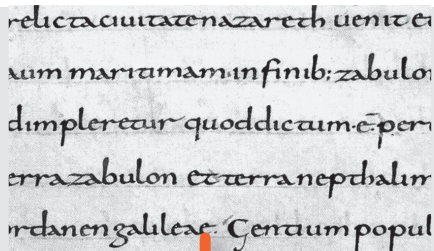 relicta ciuitate nazareth uenit et
aum maritimam in finib; zabulon
dimpleretur quod dictum ē per
erra zabulon et terra nepthalim
rdanen galileae. Gentium popul